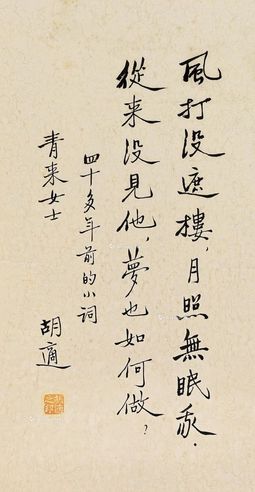 風打没遮樓，月照無眠我。
從来没見他，夢也如何做？
四十多年前的小词
青来女士
胡適